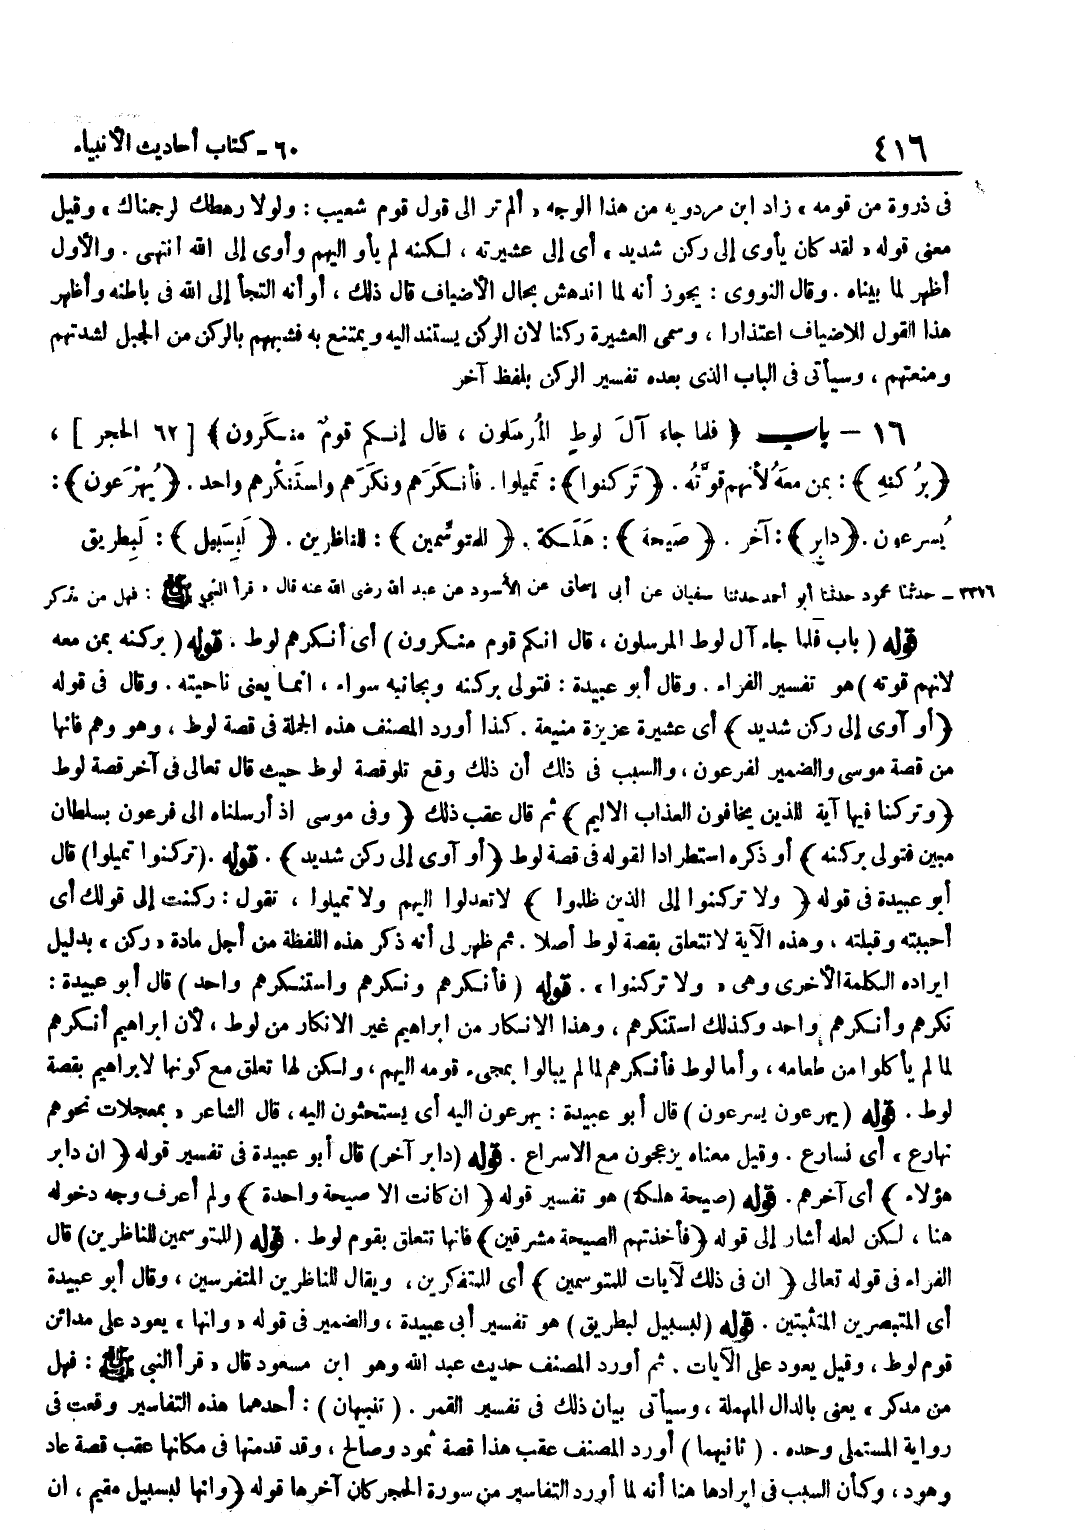 ٤١٦
٦٠ - كتاب أحاديث الأنبياء
فى ذروة من قومه » زاد ابن مردويه من هذا الوجه « ألم تر الى قول قوم شعيب : ولولا رهطك لرجمناك » وقيل
معنى قوله « لقد كان يأوى إلى ركن شديد » أى إلى عشيرته ، لكنه لم يأو اليهم وأوى إلى الله انتهى . والأول
أظهر لما بيناه . وقال النووى : يجوز أنه لما اندهش بحال الأضياف قال ذلك ، أو أنه التجأ إلى الله فى باطنه وأظهر
هذا القول للاضياف اعتذارا ، وسمى العشيرة ركنا لان الركن يستند اليه ويمتنع به فشبههم بالركن من الجبل لشدتهم
ومنعتهم ، وسيأتى فى الباب الذى بعده تفسير الركن بلفظ آخر
١٦ - باب ﴿ فلما جاء آلَ لوطٍ المُرسَلون ، قال إنكم قومٌ منكَرون ﴾ [ ٦٢ الحجر ] ،
﴿ بِرُكنهِ ﴾ : بمن معهُ لأنهم قوَّتُه . ﴿ تَركنوا ﴾ : تَميلوا . فأنكرَهم ونكَرَهم واستَنكرهم واحد . ﴿ يُهرَعون ﴾ :
يُسرعون . ﴿ دابِر ﴾ : آخر . ﴿ صَيحة ﴾ : هَلَكة . ﴿ للمتوسِّمين ﴾ : للناظرين . ﴿ لَبِسَبيل ﴾ : لَبِطريق
٣٣٧٦ - حدثنا محمود حدثنا أبو أحمد حدثنا سفيان عن أبى إسحاق عن الأسود عن عبد الله رضى الله عنه قال « قرأ النبي ﷺ : فهل من مدكر
قوله ( باب فلما جاء آل لوط المرسلون ، قال انكم قوم منكرون ) أى أنكرهم لوط . قوله ( بركنه بمن معه
لانهم قوته ) هو تفسير الفراء . وقال أبو عبيدة : فتولى بركنه وبجانبه سواء ، انما يعنى ناحيته . وقال فى قوله
﴿ أو آوى إلى ركن شديد ﴾ أى عشيرة عزيزة منيعة . كذا أورد المصنف هذه الجملة فى قصة لوط ، وهو وهم فانها
من قصة موسى والضمير لفرعون ، والسبب فى ذلك أن ذلك وقع تلو قصة لوط حيث قال تعالى فى آخر قصة لوط
﴿ وتركنا فيها آية للذين يخافون العذاب الاليم ﴾ ثم قال عقب ذلك ﴿ وفى موسى اذ أرسلناه الى فرعون بسلطان
مبين فتولى بركنه ﴾ أو ذكره استطرادا لقوله فى قصة لوط ﴿ أو آوى إلى ركن شديد ﴾ . قوله . ( تركنوا تميلوا ) قال
أبو عبيدة فى قوله ﴿ ولا تركنوا إلى الذين ظلموا ﴾ لا تعدلوا اليهم ولا تميلوا ، تقول : ركنت إلى قولك أى
أحببته وقبلته ، وهذه الآية لا تتعلق بقصة لوط أصلا . ثم ظهر لى أنه ذكر هذه اللفظة من أجل مادة « ركن » بدليل
ايراده الكلمة الأخرى وهى « ولا تركنوا » . قوله ( فأنكرهم ونكرهم واستنكرهم واحد ) قال أبو عبيدة :
نكرهم وأنكرهم واحد وكذلك استنكرهم ، وهذا الانكار من ابراهيم غير الانكار من لوط ، لأن ابراهيم أنكرهم
لما لم يأكلوا من طعامه ، وأما لوط فأنكرهم لما لم يبالوا بمجىء قومه اليهم ، ولكن لها تعلق مع كونها لابراهيم بقصة
لوط . قوله ( يهرعون يسرعون ) قال أبو عبيدة : يهرعون اليه أى يستحثون اليه ، قال الشاعر « بمعجلات نحوهم
نهارع » أى نسارع . وقيل معناه يزعجون مع الاسراع . قوله ( دابر آخر ) قال أبو عبيدة فى تفسير قوله ﴿ ان دابر
هؤلاء ﴾ أى آخرهم . قوله ( صيحة هلكة ) هو تفسير قوله ﴿ ان كانت الا صيحة واحدة ﴾ ولم أعرف وجه دخوله
هنا ، لكن لعله أشار إلى قوله ﴿ فأخذتهم الصيحة مشرقين ﴾ فانها تتعلق بقوم لوط . قوله ( للمتوسمين للناظرين ) قال
الفراء فى قوله تعالى ﴿ ان فى ذلك لآيات للمتوسمين ﴾ أى للمتفكرين ، ويقال للناظرين المتفرسين ، وقال أبو عبيدة
أى المتبصرين المتثبتين . قوله ( لبسبيل لبطريق ) هو تفسير أبى عبيدة ، والضمير فى قوله « وانها » يعود على مدائن
قوم لوط ، وقيل يعود على الآيات . ثم أورد المصنف حديث عبد الله وهو ابن مسعود قال « قرأ النبي ﷺ : فهل
من مدكر » يعنى بالدال المهملة ، وسيأتى بيان ذلك فى تفسير القمر . ( تنبيهان ) : أحدهما هذه التفاسير وقعت فى
رواية المستملى وحده . ( ثانيهما ) أورد المصنف عقب هذا قصة ثمود وصالح ، وقد قدمتها فى مكانها عقب قصة عاد
وهود ، وكأن السبب فى ايرادها هنا أنه لما أورد التفاسير من سورة الحجر كان آخرها قوله ﴿ وانها لبسبيل مقيم ، ان